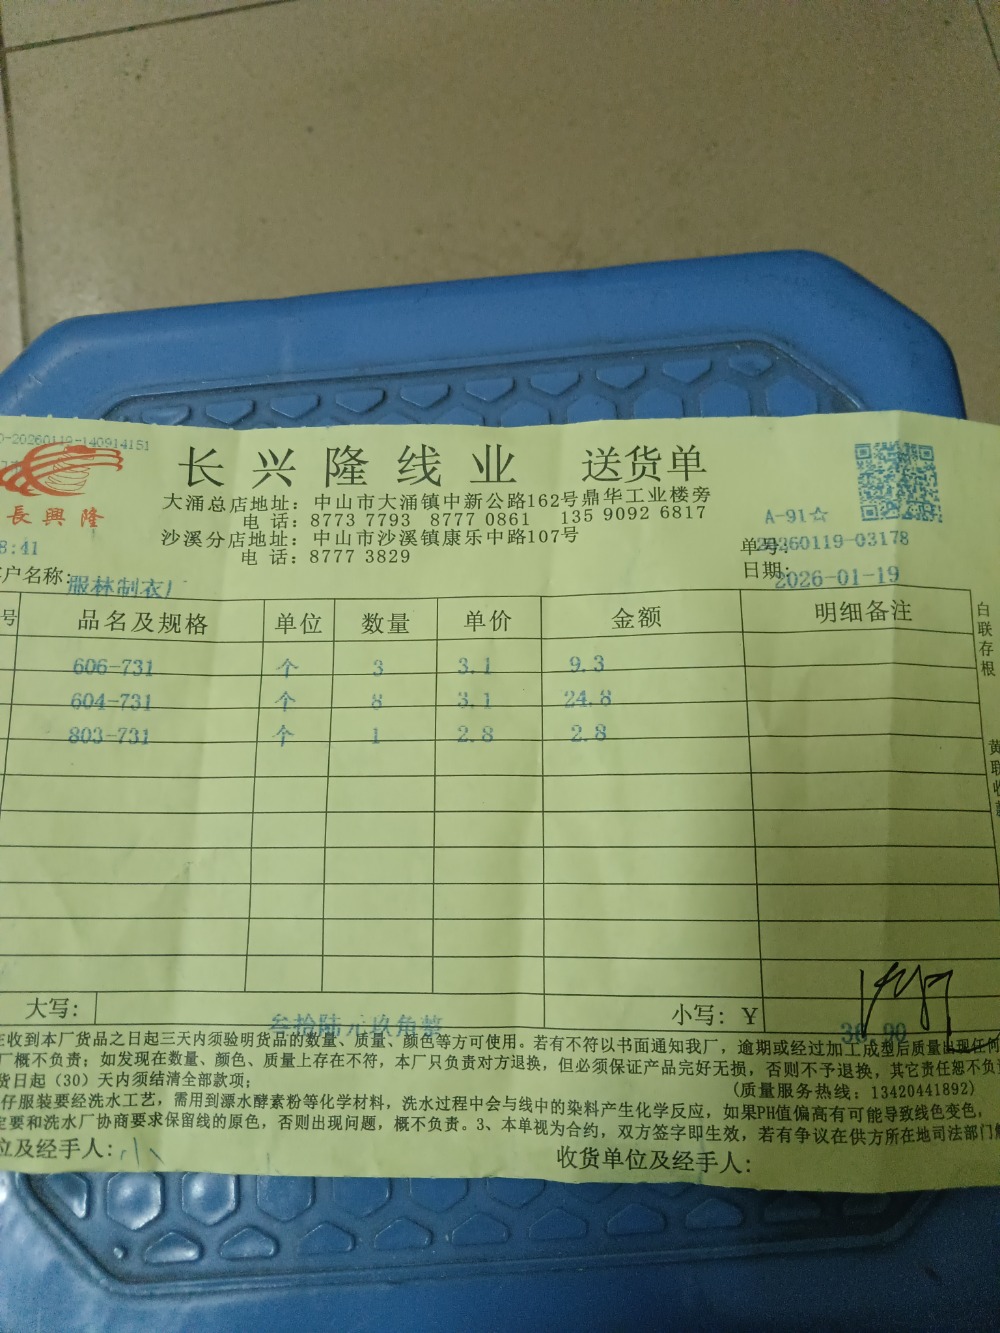 -20260119-140914151
長興隆
长兴隆线业 送货单
大涌总店地址：中山市大涌镇中新公路162号鼎华工业楼旁
电 话：8773 7793 8777 0861 135 9092 6817
沙溪分店地址：中山市沙溪镇康乐中路107号
电 话：8777 3829
A-91☆
8:41
单号：20260119-03178
户名称：服林制衣厂
日期：2026-01-19
号 品名及规格 单位 数量 单价 金额 明细备注
606-731 个 3 3.1 9.3
604-731 个 8 3.1 24.8
803-731 个 1 2.8 2.8
白联存根
黄联收
大写：叁拾陆元玖角整 小写：Y 36.90
在收到本厂货品之日起三天内须验明货品的数量、质量、颜色等方可使用。若有不符以书面通知我厂，逾期或经过加工成型后质量出现任何
厂概不负责；如发现在数量、颜色、质量上存在不符，本厂只负责对方退换，但必须保证产品完好无损，否则不予退换，其它责任恕不负
货日起（30）天内须结清全部款项；
（质量服务热线：13420441892）
仔服装要经洗水工艺，需用到漂水酵素粉等化学材料，洗水过程中会与线中的染料产生化学反应，如果PH值偏高有可能导致线色变色，
定要和洗水厂协商要求保留线的原色，否则出现问题，概不负责。3、本单视为合约，双方签字即生效，若有争议在供方所在地司法部门
位及经手人：
收货单位及经手人：